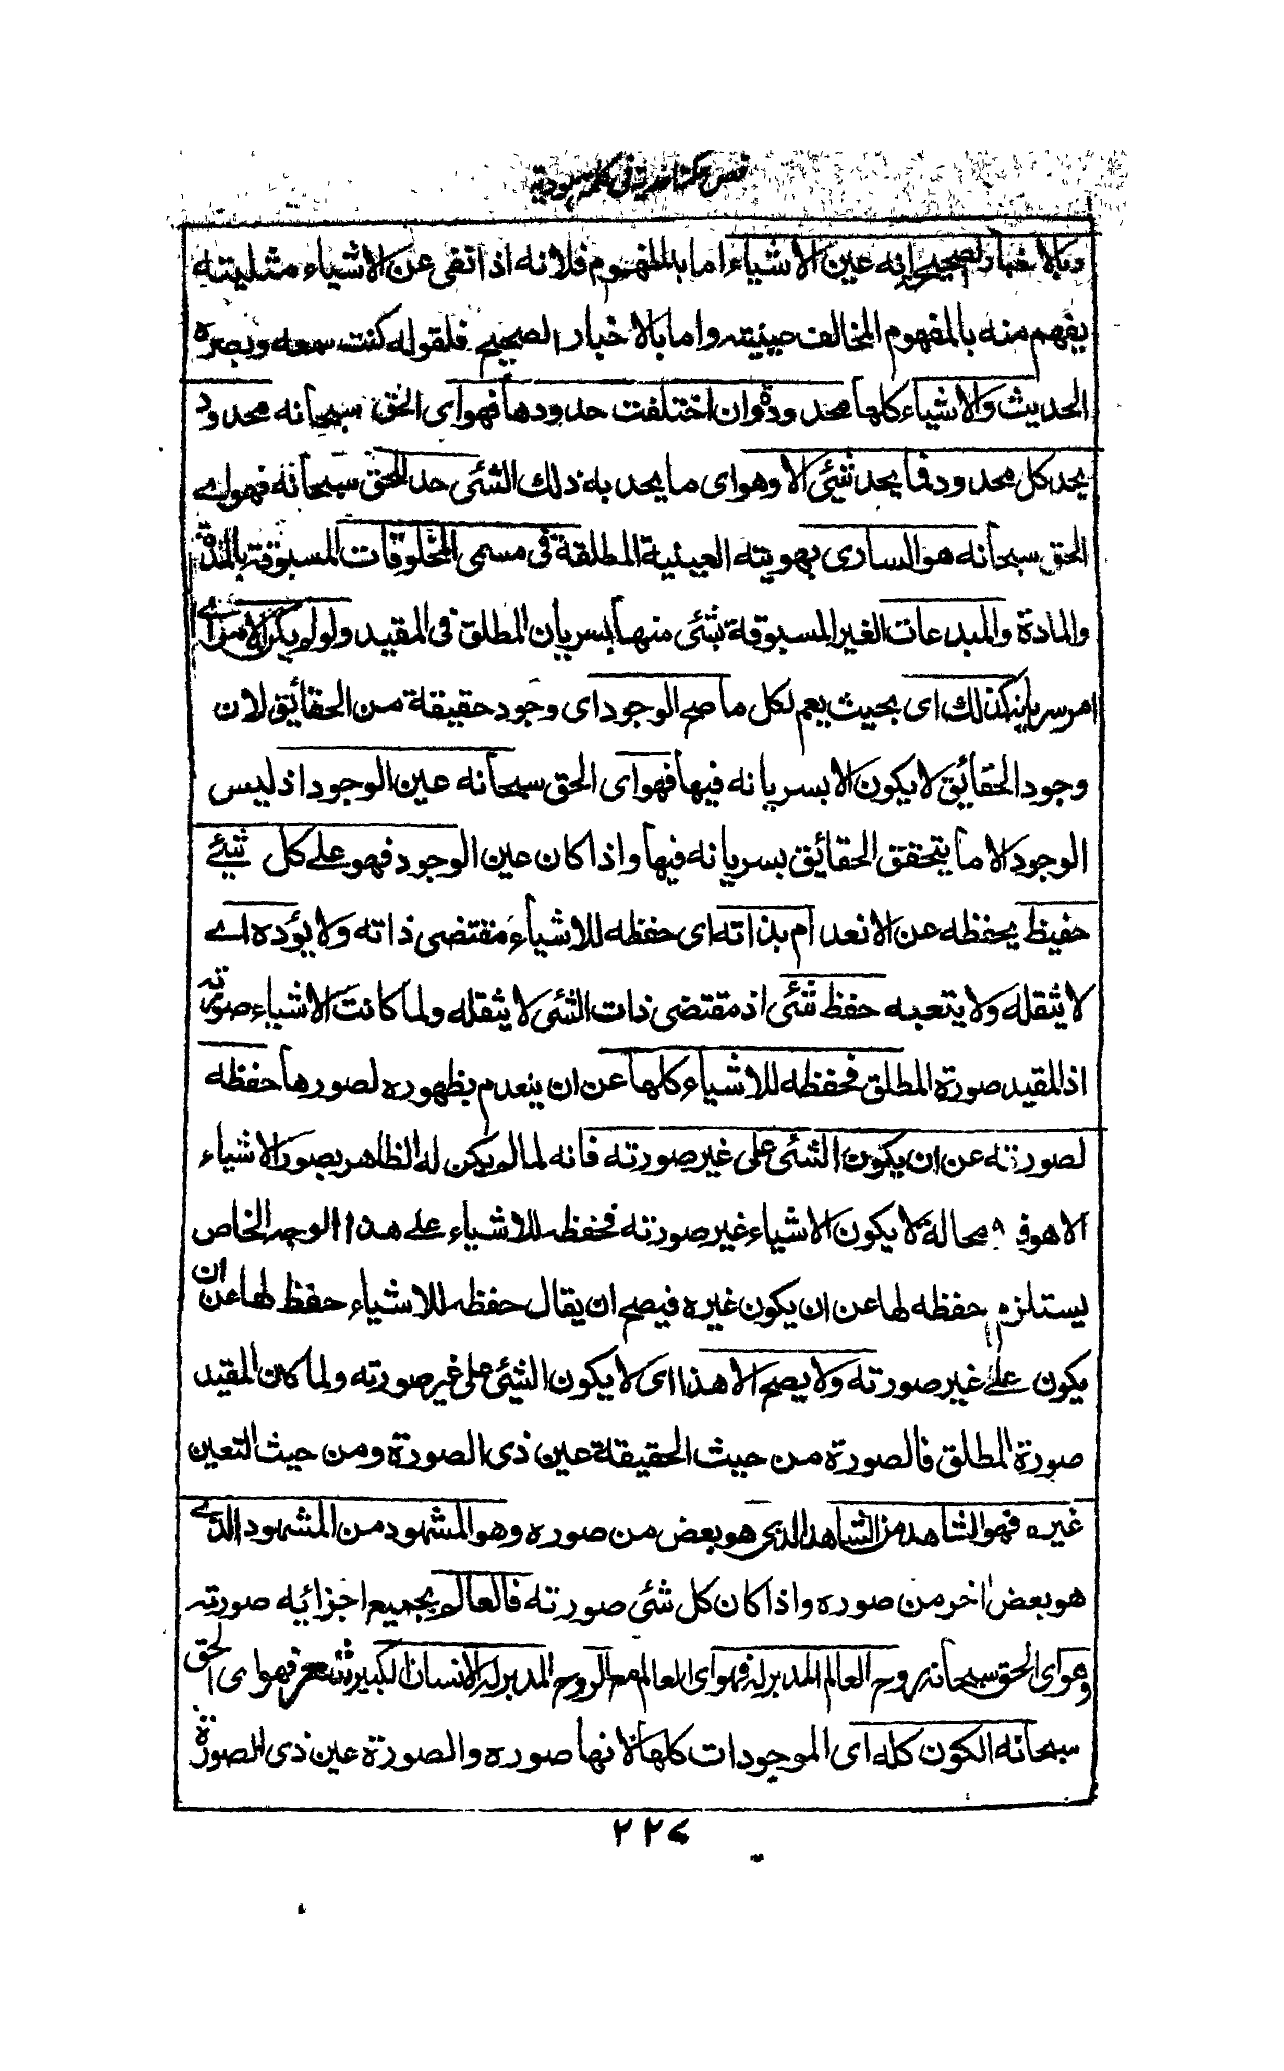 فص حكمة احدية فى كلمة هودية
وبالاخبار الصحيح انه عين الاشياء اما بالمفهوم فلانه اذا نفى عن الاشياء مثليته
يفهم منه بالمفهوم المخالف عينيته واما بالاخبار الصحيح فلقوله كنت سمعه وبصره
الحديث والاشياء كلها محدودة وان اختلفت حدودها فهو اى الحق سبحانه محدود
بحد كل محدود فما يحد شئى الا وهو اى ما يحد به ذلك الشئى حد الحق سبحانه فهو اے
الحق سبحانه هو السارى بهويته العينية المطلقة فى مسمى المخلوقات المسبوقة بالمدة
والمادة والمبدعات الغير المسبوقة بشئى منها بسريان المطلق فى المقيد ولو لم يكن الامر اے
امر سريانه كذلك اى بحيث يعم لكل ما صح الوجود اى وجود حقيقة من الحقائق لان
وجود الحقائق لا يكون الا بسريانه فيها فهو اى الحق سبحانه عين الوجود اذ ليس
الوجود الا ما يتحقق الحقائق بسريانه فيها واذا كان عين الوجود فهو على كل شيئے
حفيظ يحفظه عن الانعدام بذاته اى حفظه للاشياء مقتضى ذاته ولا يؤده اے
لا يثقله ولا يتعبه حفظ شئى اذ مقتضى ذات الشئى لا يثقله ولما كانت الاشياء صورته
اذ المقيد صورة المطلق فحفظه للاشياء كلها عن ان ينعدم بظهوره لصورها حفظه
لصورته عن ان يكون الشئى على غير صورته فانه لما لم يكن له الظاهر بصور الاشياء
الا هو فلا محالة لا يكون الاشياء غير صورته فحفظه للاشياء على هذا الوجه الخاص
يستلزم حفظه لها عن ان يكون غيره فيصح ان يقال حفظه للاشياء حفظ لها عن ان
يكون على غير صورته ولا يصح الا هذا اى لا يكون الشئى على غير صورته ولما كان المقيد
صورة المطلق فالصورة من حيث الحقيقة عين ذى الصورة ومن حيث التعين
غيره فهو الشاهد من الشاهد الذى هو بعض من صوره وهو المشهود من المشهود الذے
هو بعض اخر من صوره واذا كان كل شئى صورته فالعالم بجميع اجزائه صورته
وهو اى الحق سبحانه روح العالم المدبر له فهو اى العالم مع الروح المدبر له الانسان الكبير شعر فهو اى الحق
سبحانه الكون كله اى الموجودات كلها لانها صوره والصورة عين ذى الصورة
٢٢٧